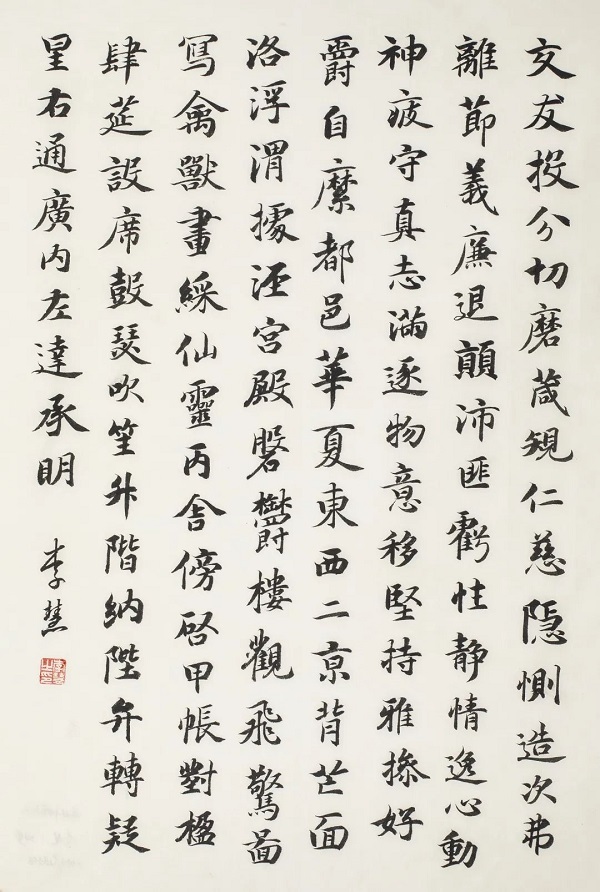 交友投分切磨箴規仁慈隱惻造次弗
離節義廉退顛沛匪虧性靜情逸心動
神疲守真志滿逐物意移堅持雅操好
爵自縻都邑華夏東西二京背芒面
洛浮渭據涇宮殿磐鬱樓觀飛驚啚
寫禽獸畫綵仙靈丙舍傍啓甲帳對楹
肆筵設席鼓瑟吹笙升階納陛弁轉疑
星右通廣內左達承明
李慧